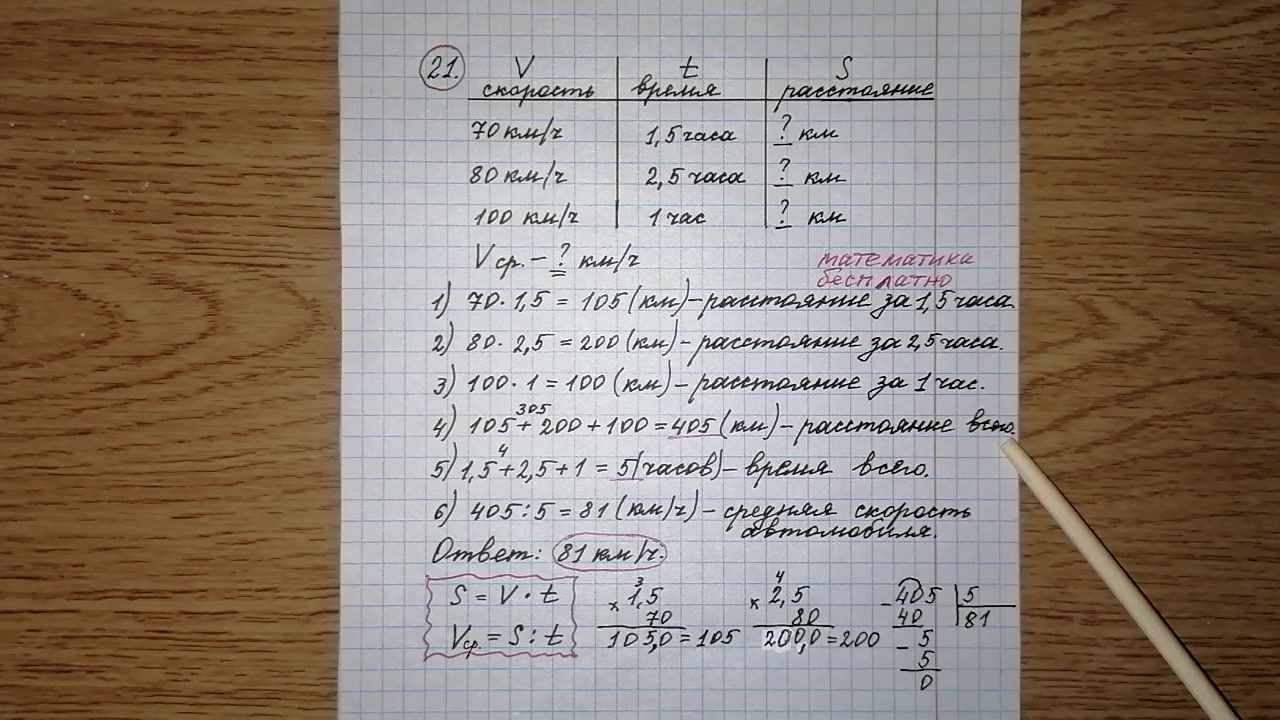 21. V t S
скорость время расстояние
70 км/ч 1,5 часа ? км
80 км/ч 2,5 часа ? км
100 км/ч 1 час ? км
Vср. – ? км/ч
математика
бесплатно
1) 70 · 1,5 = 105 (км) – расстояние за 1,5 часа.
2) 80 · 2,5 = 200 (км) – расстояние за 2,5 часа.
3) 100 · 1 = 100 (км) – расстояние за 1 час.
305
4) 105 + 200 + 100 = 405 (км) – расстояние всего.
4
5) 1,5 + 2,5 + 1 = 5 (часов) – время всего.
6) 405 : 5 = 81 (км/ч) – средняя скорость
автомобиля.
Ответ: 81 км/ч.
S = V · t
Vср. = S : t
3
× 1,5
70
105,0 = 105
4
× 2,5
80
200,0 = 200
– 405 5
40 81
– 5
5
0